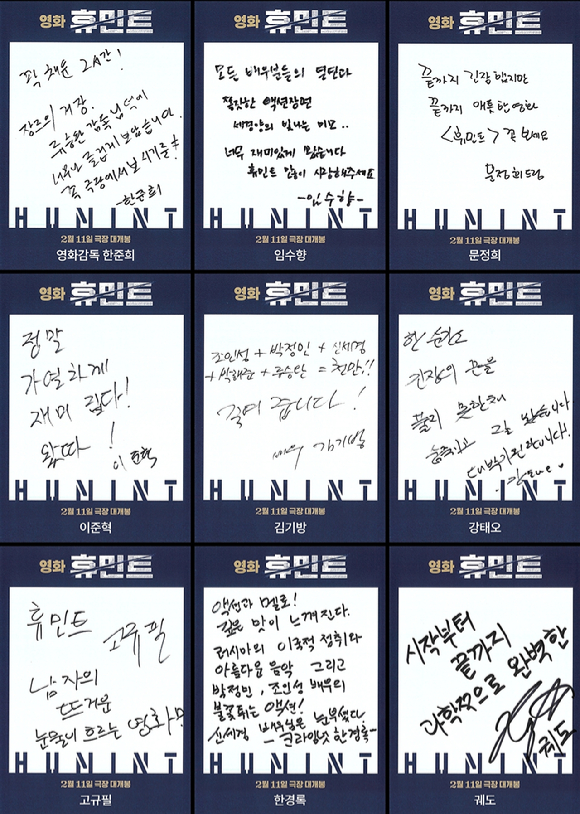 영화 휴민트
꽉 채운 2시간!
장르의 귀장.
류승완 감독님 덕에
너무나 즐겁게 보았습니다.
꼭 극장에서 보시기를!
-한준희
HUMINT
2월 11일 극장 대개봉
영화감독 한준희
영화 휴민트
모든 배우분들의 열연과
짜릿한 액션장면
세경양의 빛나는 미모..
너무 재미있게 봤습니다
휴민트 많이 사랑해주세요
-임수향-
HUMINT
2월 11일 극장 대개봉
임수향
영화 휴민트
끝까지 긴장했지만
끝까지 애틋한 영화
<휴민트> 꼭 보세요
문정희 드림
HUMINT
2월 11일 극장 대개봉
문정희
영화 휴민트
정말
가열하게
재미 있다!
왔따!
이준혁
HUMINT
2월 11일 극장 대개봉
이준혁
영화 휴민트
조인성 + 박정민 + 신세경
+ 박해준 + 류승완 = 천만!!
죽여 줍니다!
배우 김기방
HUMINT
2월 11일 극장 대개봉
김기방
영화 휴민트
한 순간도
긴장의 끈을
풀지 못한채
숨죽이고 잘 봤습니다
대박기원합니다!
HUMINT
2월 11일 극장 대개봉
강태오
영화 휴민트
휴민트
고규필
남자의
뜨거운
눈물이 흐르는 영화!!
HUMINT
2월 11일 극장 대개봉
고규필
영화 휴민트
액션과 멜로!
깊은 맛이 느껴진다.
러시아의 이국적 정취와
아름다운 음악 그리고
박정민, 조인성 배우의
불꽃튀는 액션!
신세경 배우님은 눈부셨다
- 크라잉넛 한경록-
HUMINT
2월 11일 극장 대개봉
한경록
영화 휴민트
시작부터
끝까지
과학적으로 완벽한
궤도
HUMINT
2월 11일 극장 대개봉
궤도